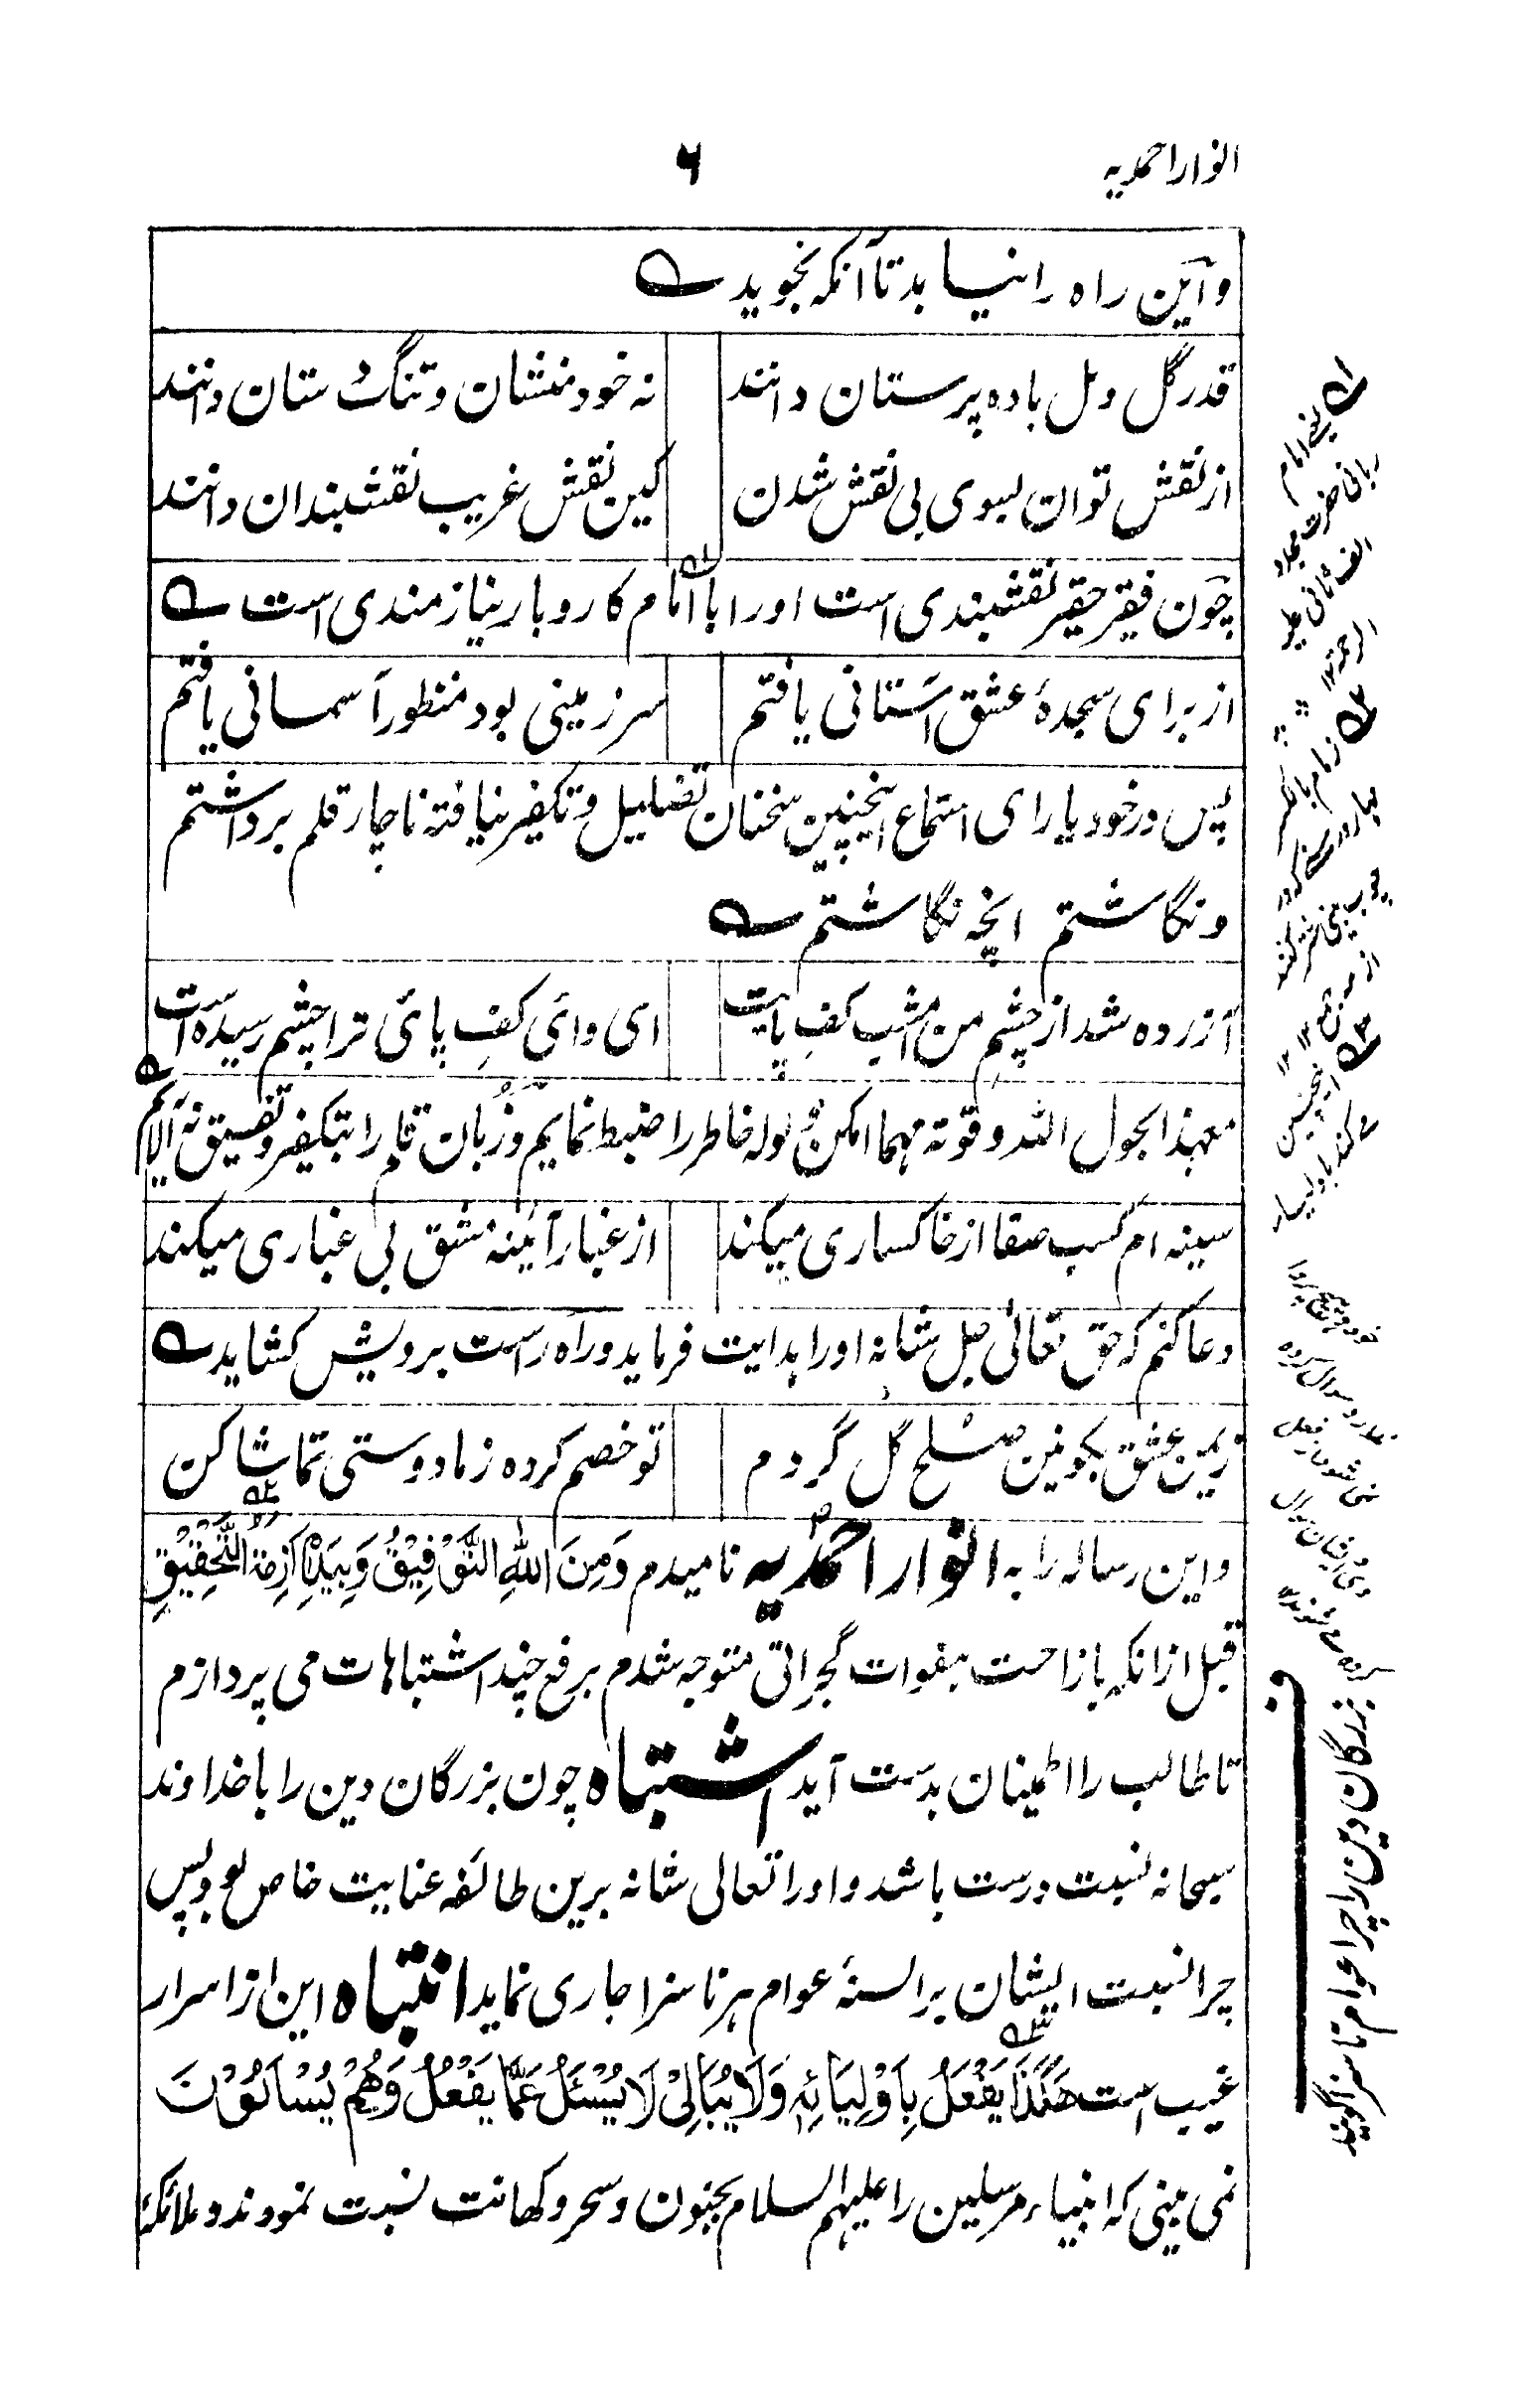 انوار احمدیه
۶
و این راه را نیابد تا آنکه نجوید
قدر گل و مل باده پرستان دانند نه خود منشان و تنگ دستان دانند
از نقش توان بسوی بی نقش شدن کین نقش غریب نقشبندان دانند
چون فقیر حقیر نقشبندی است او را با امام کاروبار نیازمندی است
از برای سجدهٔ عشق آستانی یافتم سرزمینی بود منظور آسمانی یافتم
پس در خود یارای استماع اینچنین سخنان تضلیل و تکفیر نیافته ناچار قلم برداشتم
و نگاشتم انچه نگاشتم
آزرده شد از چشم من امشب کف پایت ای وائی کفِ پائی ترا چشم رسیده است
معهذا بحول الله و قوته مهما امکن خاطر را ضبط نمایم و زبان قلم را بتکفیر و تفسیق نه آلایم
سینه ام کسب صفا از خاکساری میکند از غبار آئینه مشق بی غباری میکند
دعا کنم که حق تعالی جل شانه او را هدایت فرماید و راه راست برویش کشاید
زیمن عشق بکونین صلح کل کردم تو خصم کرده ز ما دوستی تماشا کن
و این رساله را به انوار احمدیه نامیدم وَمِنَ اللهِ التَّوْفِيْقُ وَبِيَدِهٖ اَزِمَّةُ التَّحْقِيْقِ
قبل از انکه بازاحت هفوات گجراتی متوجه شدم برفع چند اشتباهات می پردازم
تا طالب را اطمینان بدست آید اشتباه چون بزرگان دین را با خداوند
سبحانه نسبت درست باشد و او را تعالی شانه برین طائفه عنایت خاص بود پس
چرا نسبت ایشان بر السنهٔ عوام هر ناسزا جاری نماید انتباه این از اسرار
غیب است هٰكَذَا يَفْعَلُ بِاَوْلِيَائِهٖ وَلَا يُبَالِيْ لَا يُسْئَلُ عَمَّا يَفْعَلُ وَهُمْ يُسْاَلُوْنَ
نمی بینی که انبیاء مرسلین را علیهم السلام بجنون و سحر و کهانت نسبت نمودند و ملائکهٔ
یعنی امام
ربانی حضرت مجدد
الف ثانی علیه
الرحمة ۱۲
زمام بالکسر
اینچنین
میکند باولیاء
خود و هیچ پروا
ندارد و سوال کرده
نمی شود از فعل
وی و ایشان سوال
کرده می شوند ۱۲
ف
بزرگان دین را چرا عوام ناسزا گویند